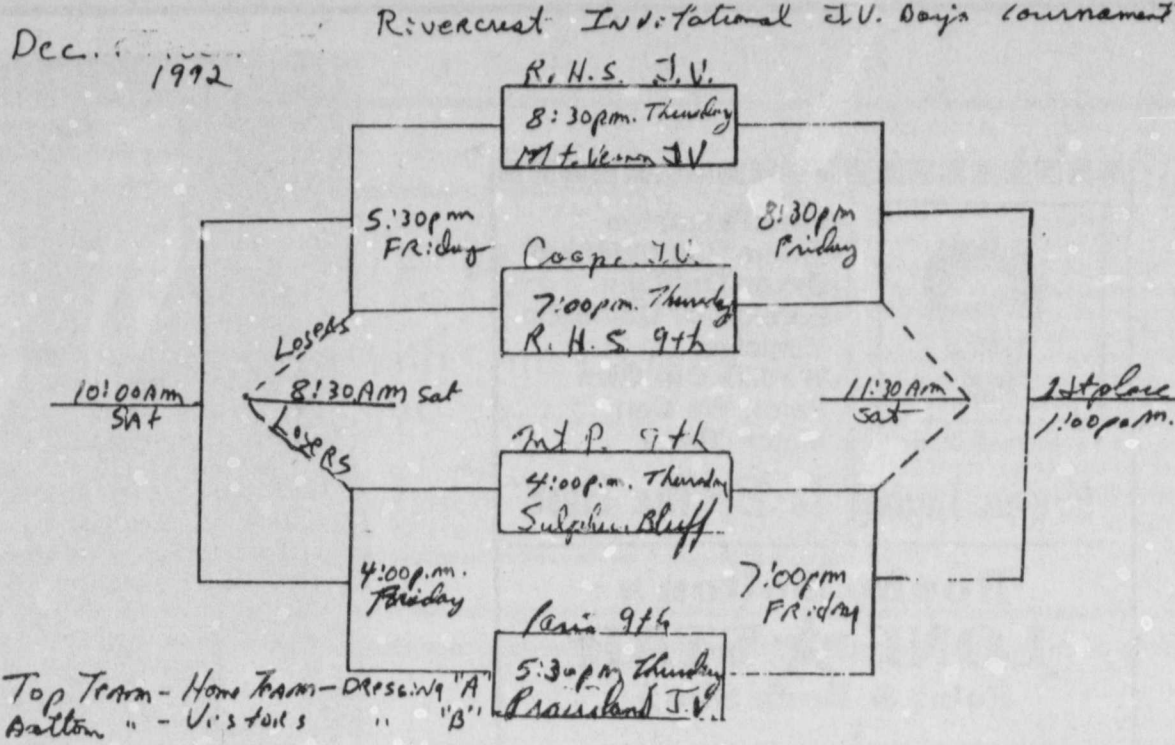 Rivercrest Invitational J.V. Boys Tournament
Dec.
1992
R. H. S. J.V.
8:30pm. Thursday
Mt. Vernon JV
5:30pm
FRiday
8:30pm
Friday
Coope J.V.
7:00pm. Thursday
R. H. S 9th
LoseRS
10:00Am
SAt
8:30Am Sat
11:30Am
Sat
1st place
1:00p.m.
LoseRS
Mt P. 9th
4:00p.m. Thursday
Sulphur Bluff
4:00p.m.
Friday
7:00pm
FRiday
Paris 9th
5:30pm Thursday
Prairiland J.V.
Top Team - Home Team - DRessing "A"
Bottom " - Visitors " "B"